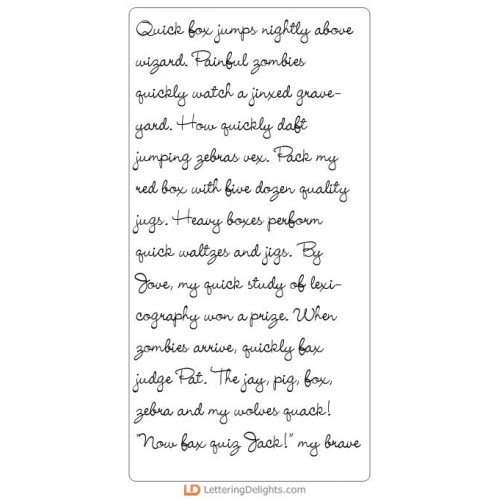 Quick fox jumps nightly above
wizard. Painful zombies
quickly watch a jinxed grave-
yard. How quickly daft
jumping zebras vex. Pack my
red box with five dozen quality
jugs. Heavy boxes perform
quick waltzes and jigs. By
Jove, my quick study of lexi-
cography won a prize. When
zombies arrive, quickly fax
judge Pat. The jay, pig, fox,
zebra and my wolves quack!
"Now fax quiz Jack!" my brave
LD LetteringDelights.com